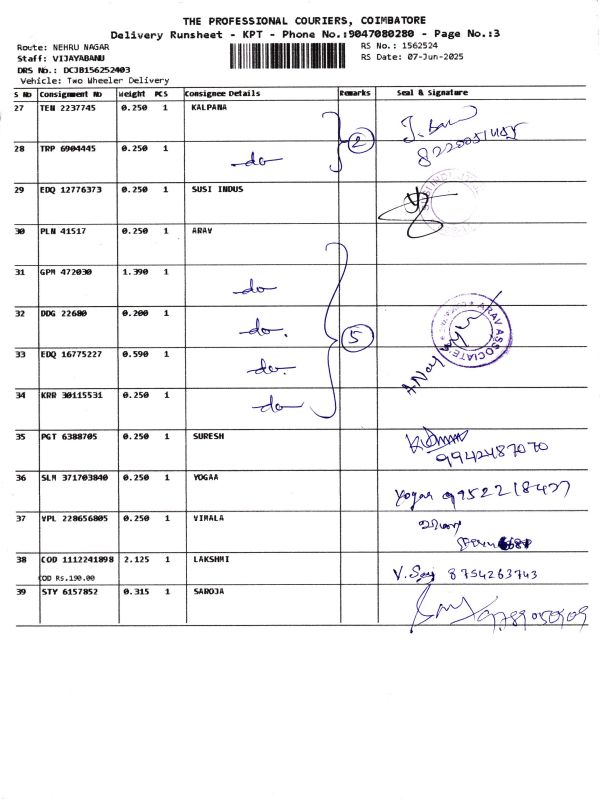 THE PROFESSIONAL COURIERS, COIMBATORE
Delivery Runsheet - KPT - Phone No.:9047080280 - Page No.:3
Route: NEHRU NAGAR RS No.: 1562524
Staff: VIJAYABANU RS Date: 07-Jun-2025
DRS No.: DCJB156252403
Vehicle: Two Wheeler Delivery
S No Consignment No Weight PCS Consignee Details Remarks Seal & Signature
27 TEN 2237745 0.250 1 KALPANA
28 TRP 6904445 0.250 1 -do- 2
29 EDQ 12776373 0.250 1 SUSI INDUS
30 PLN 41517 0.250 1 ARAV
31 GPM 472030 1.390 1 -do-
32 DDG 22680 0.200 1 -do-
33 EDQ 16775227 0.590 1 -do- 5 ARAV ASSOCIATE'S
34 KRR 30115531 0.250 1 -do-
35 PGT 6388705 0.250 1 SURESH
9942487070
36 SLM 371703840 0.250 1 YOGAA Yogaa 9952218427
37 VPL 228656805 0.250 1 VIMALA
38 COD 1112241898 2.125 1 LAKSHMI V. 8754263743
COD RS.190.00
39 STY 6157852 0.315 1 SAROJA
9789050909